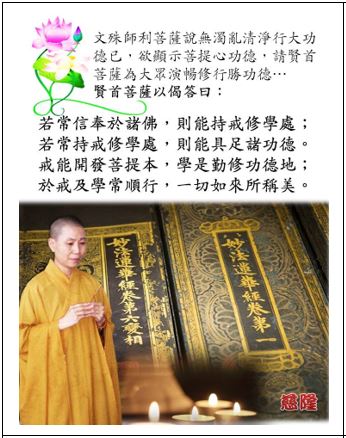 文殊師利菩薩說無濁亂清淨行大功
德已，欲顯示菩提心功德，請賢首
菩薩為大眾演暢修行勝功德…
賢首菩薩以偈答曰：
若常信奉於諸佛，則能持戒修學處；
若常持戒修學處，則能具足諸功德。
戒能開發菩提本，學是勤修功德地；
於戒及學常順行，一切如來所稱美。
妙法蓮華經卷第六變相
妙法蓮華經卷第一
慈隆